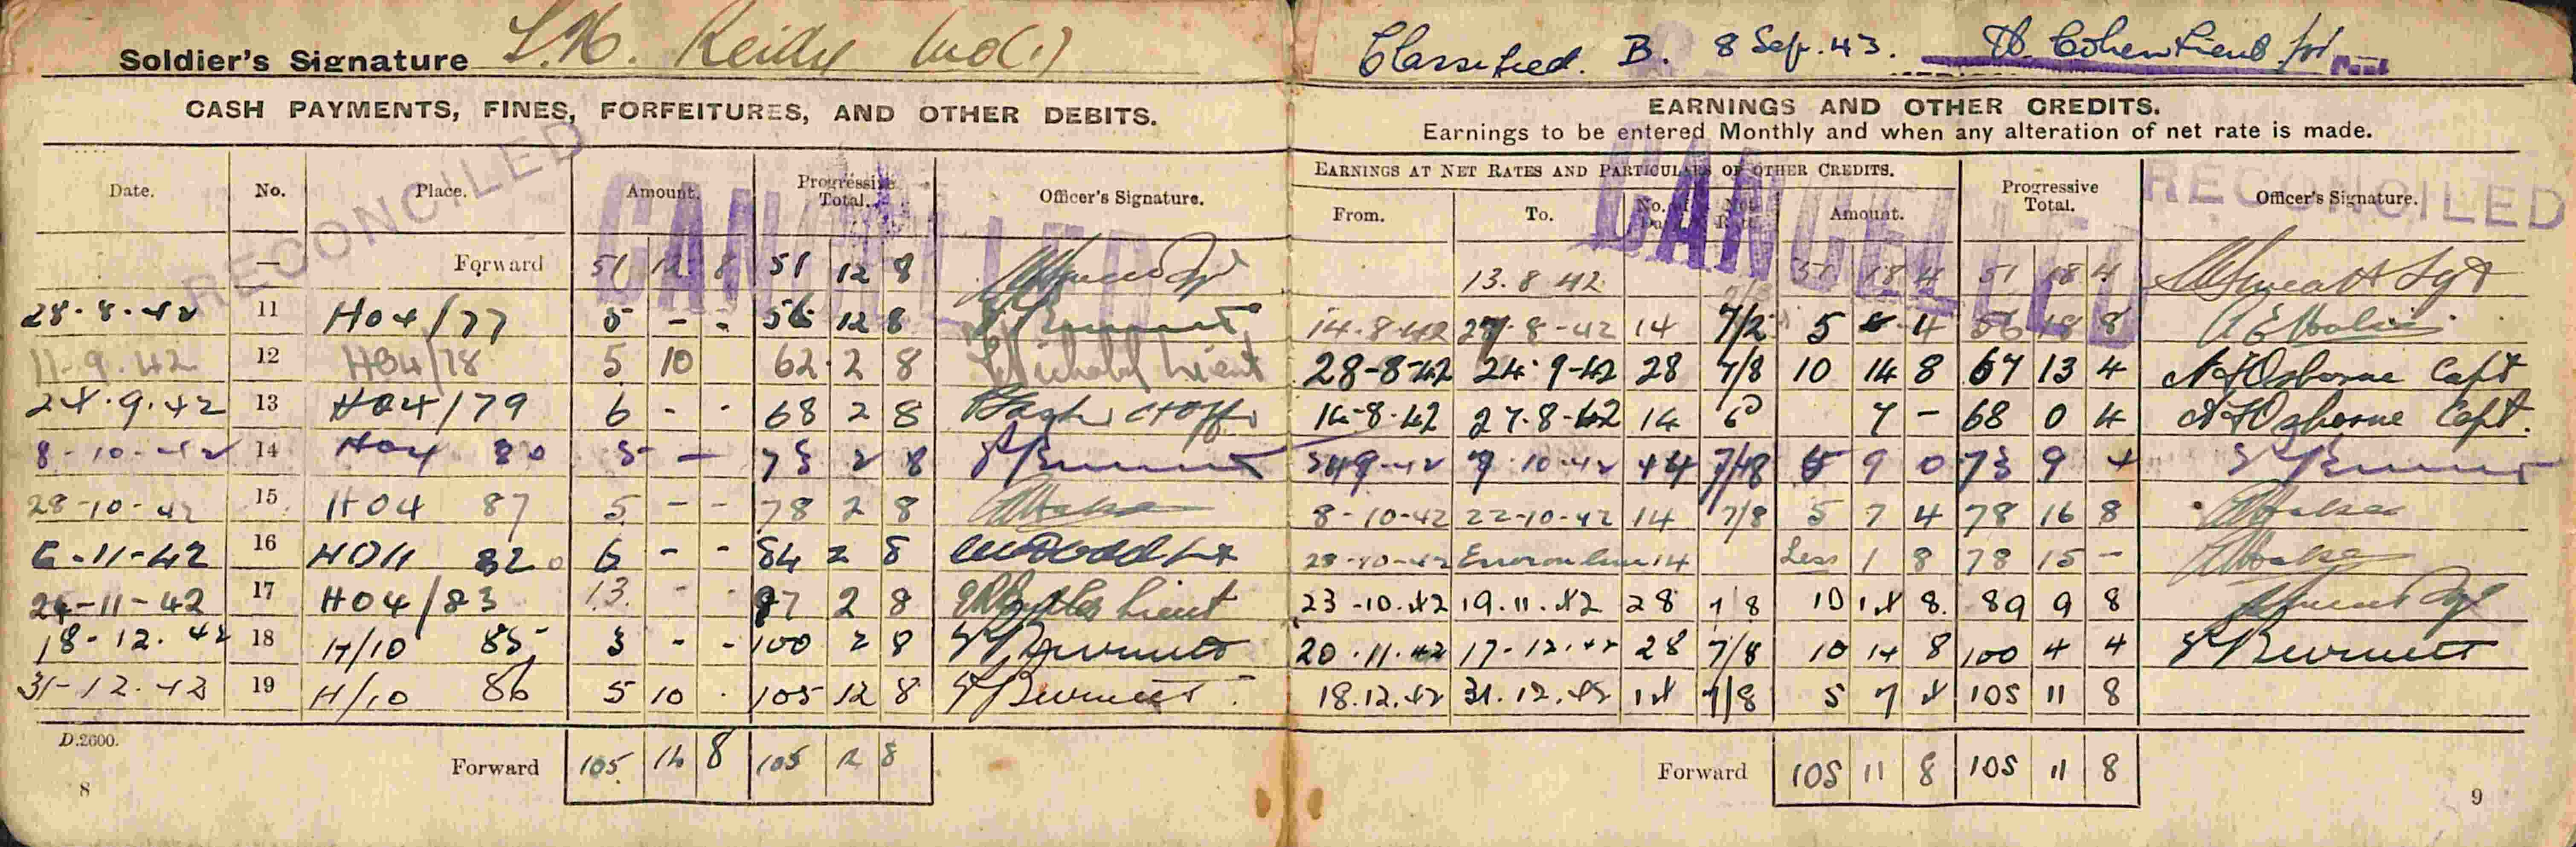 Soldier's Signature L.H. Reidy WO(1)
CASH PAYMENTS, FINES, FORFEITURES, AND OTHER DEBITS.
RECONCILED
CANCELLED
Date. No. Place. Amount. Progressive Total. Officer's Signature.
— Forward 51 12 8 51 12 8
28-8-42 11 HO4/77 5 - - 56 12 8
11-9-42 12 HO4/78 5 10 62 2 8 Lieut
24.9.42 13 HO4/79 6 - - 68 2 8
8-10-42 14 HO4 80 5 - 73 2 8
28-10-42 15 HO4 87 5 - - 78 2 8
6-11-42 16 82 6 - - 84 2 8
24-11-42 17 HO4/83 13 - - 97 2 8 Lieut
18-12-42 18 H/10 85 3 - - 100 2 8 Burnett
31-12-42 19 H/10 86 5 10 - 105 12 8 Burnett
D.2600.
Forward 105 12 8 105 12 8
8
Classified. B. 8 Sep. 43. Cohen Lieut for
EARNINGS AND OTHER CREDITS.
Earnings to be entered Monthly and when any alteration of net rate is made.
CANCELLED
RECONCILED
EARNINGS AT NET RATES AND PARTICULARS OF OTHER CREDITS. Progressive Total. Officer's Signature.
From. To. No. of Days Net Rate Amount.
13.8.42 51 18 4 51 18 4 Sgt
14-8-42 27-8-42 14 7/2 5 4 56 18 8
28-8-42 24-9-42 28 7/8 10 14 8 67 13 4 Osborne Capt
14-8-42 27-8-42 14 6 7 - 68 0 4 Osborne Capt.
7-10-42 7/8 5 9 0 73 9 4
8-10-42 22-10-42 14 7/8 5 7 4 78 16 8
28-10-42 Error on line 14 Less 1 8 78 15 -
23-10-42 19.11.42 28 7/8 10 14 8 89 9 8
20-11-42 17-12-42 28 7/8 10 14 8 100 4 4 Burnett
18.12.42 31.12.42 14 7/8 5 7 4 105 11 8
Forward 105 11 8 105 11 8
9